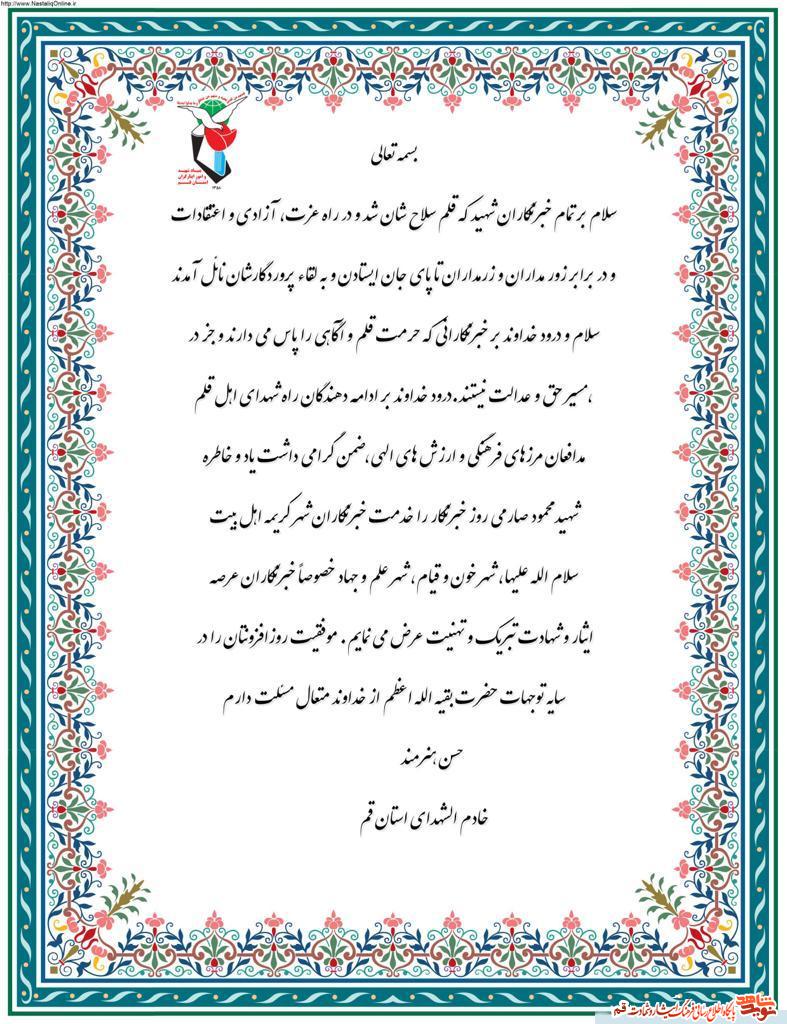 http://www.NastaliqOnline.ir
بنیاد شهید
و امور ایثارگران
استان قم
۱۳۵۸
بسمه تعالی
سلام بر تمام خبرنگاران شهید که قلم سلاح شان شد و در راه عزت، آزادی و اعتقادات
و در برابر زور مداران و زرمداران تا پای جان ایستادن و به لقاء پروردگارشان نائل آمدند
سلام و درود خداوند بر خبرنگارانی که حرمت قلم و آگاهی را پاس می دارند و جز در
،مسیر حق و عدالت نیستند.درود خداوند بر ادامه دهندگان راه شهدای اهل قلم
مدافعان مرزهای فرهنگی و ارزش های الهی ،ضمن گرامی داشت یاد و خاطره
شهید محمود صارمی روز خبرنگار را خدمت خبرنگاران شهر کریمه اهل بیت
سلام الله علیها، شهر خون و قیام، شهر علم و جهاد خصوصاً خبرنگاران عرصه
ایثار و شهادت تبریک و تهنیت عرض می نمایم . موفقیت روزافزونتان را در
سایه توجهات حضرت بقیه الله اعظم از خداوند متعال مسئلت دارم
حسن هنرمند
خادم الشهدای استان قم
نوید شاهد پایگاه اطلاع رسانی فرهنگ ایثار و شهادت قم